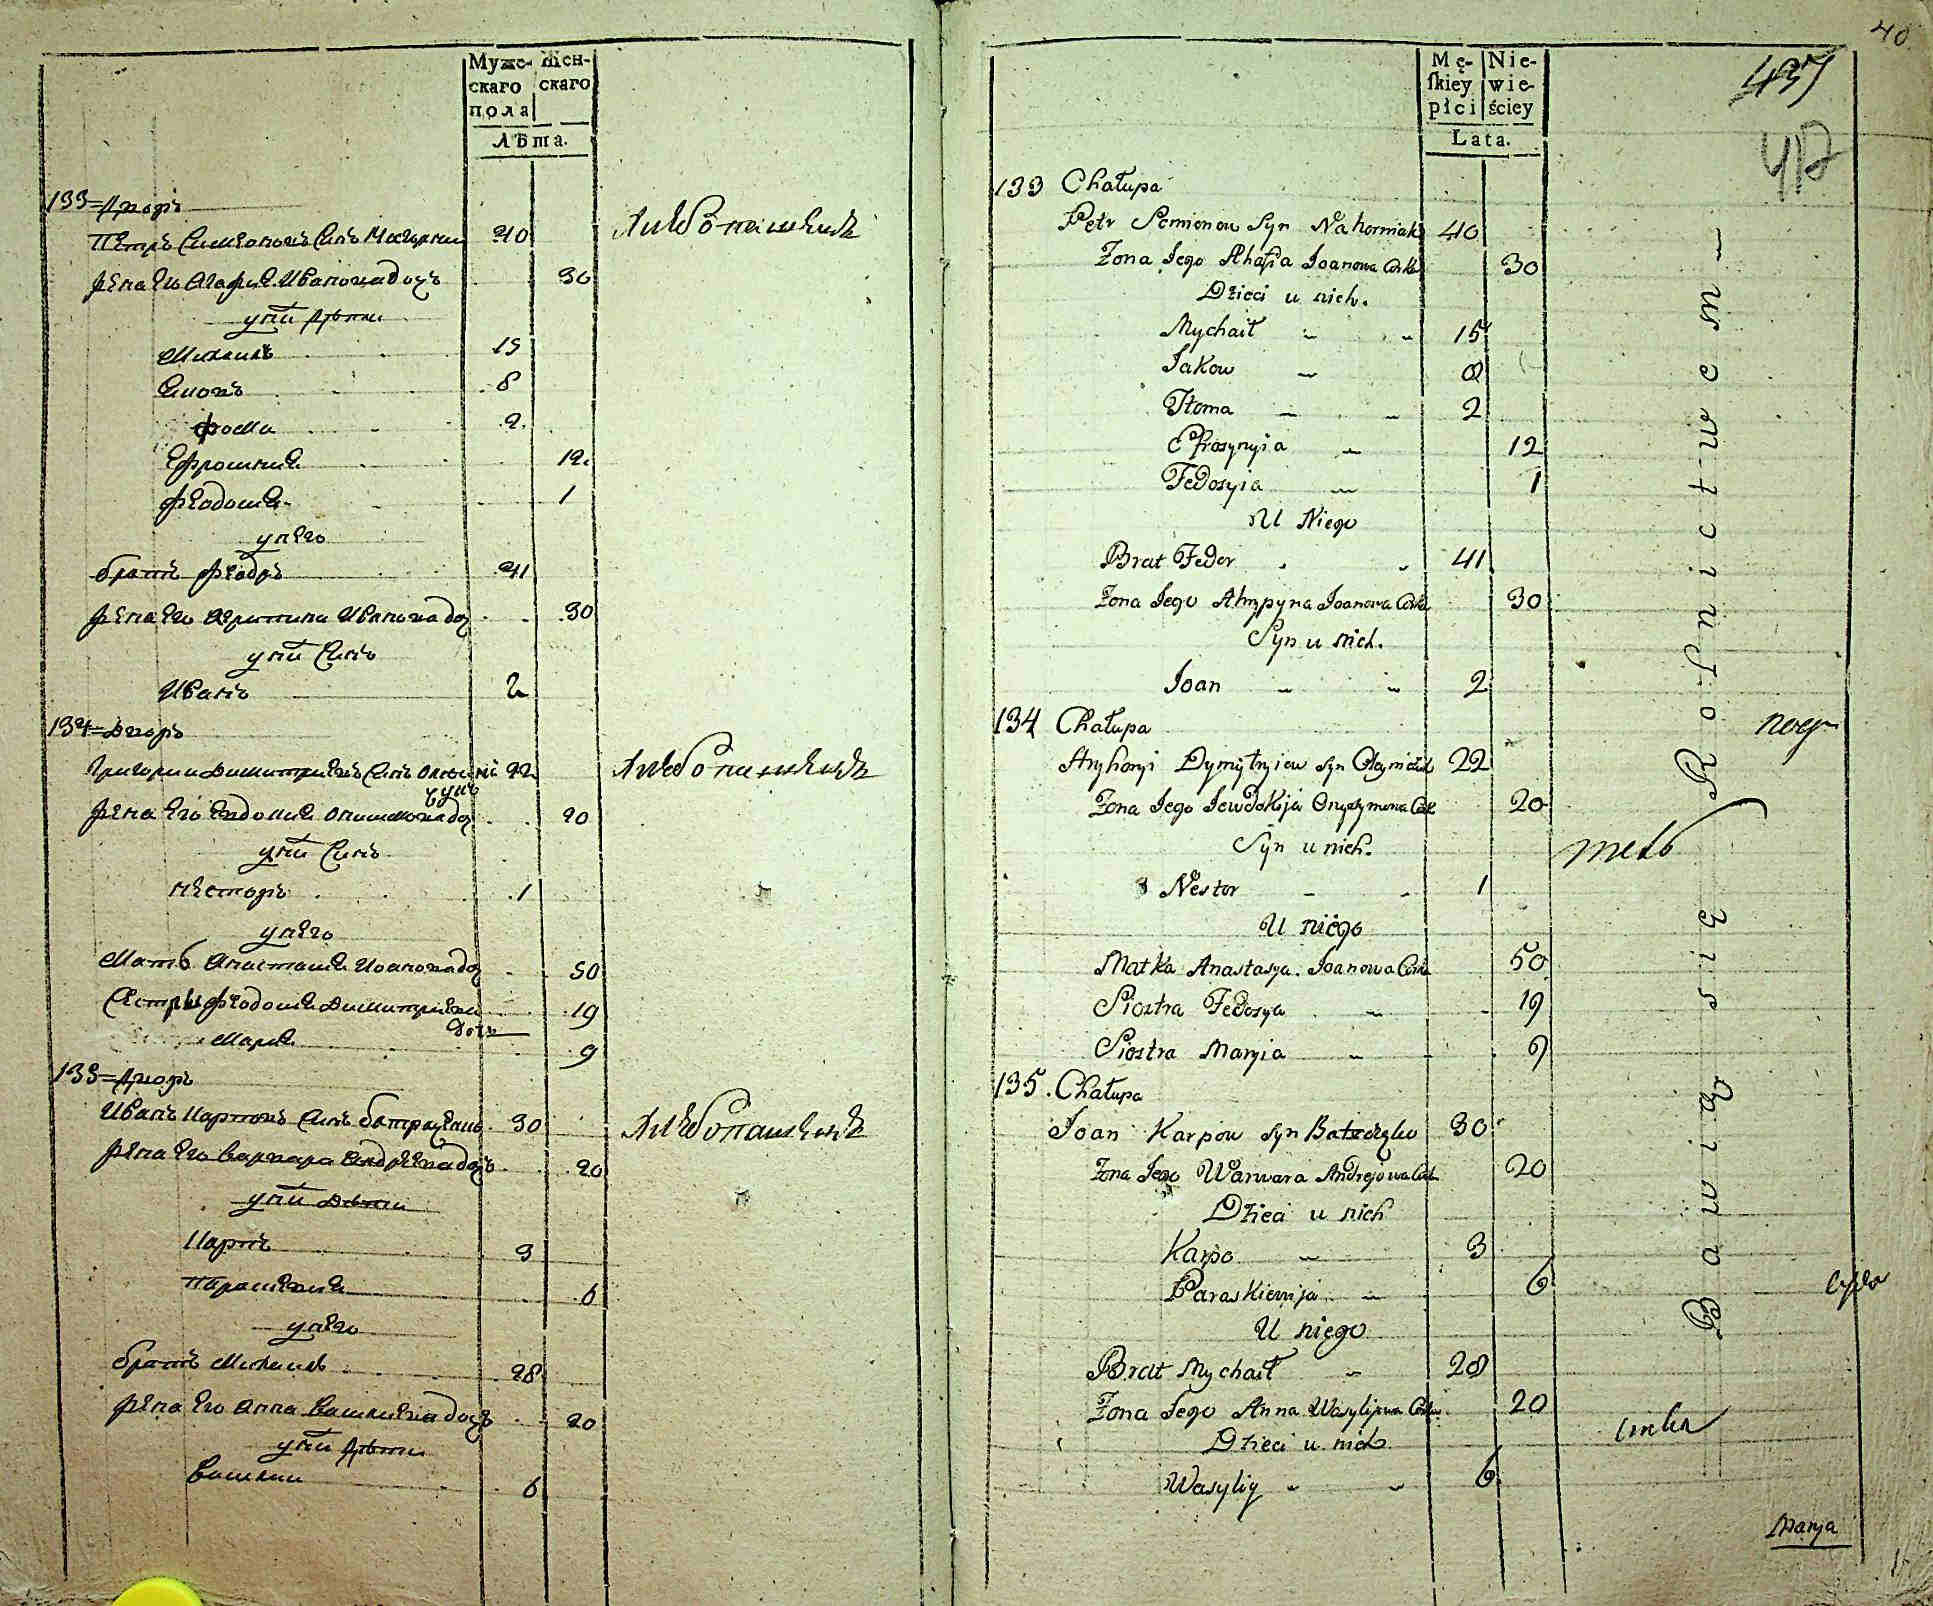 Муже-
скаго
пола
жен-
скаго
Лѣта.
133 = Дворъ
Петръ Симеоновъ Синъ
40
Хлебопашецъ
жена Его Агафия Иванова дочь
30
уних дѣти
Михаилъ
15
8
Фома
2
Ефросиния
12
Феодосия
1
унего
братъ Феодоръ
41
жена Его Иванова доч
30
уних Синъ
Иванъ
2
134 = Дворъ
Хлебопашецъ
Григорий Димитриевъ Синъ
22
жена Его Евдокия Онисимова доч
20
уних Синъ
Несторъ
1
унего
Мать Анастасия Иоанова доч
50
Сестры Феодосия Димитриева
дочь
19
Мария
9
135 = Дворъ
Иванъ Карповъ Синъ
30
Хлебопашецъ
жена Его Варвара Андреева дочъ
20
уних Дѣти
Карпъ
3
Параскевия
6
унего
братъ Михаилъ
28
жена Его Анна Василиева дочъ
20
уних дѣти
Василий
6
40
Mę-
ſkiey
płci
Nie-
wie-
ściey
Lata.
437
417
133 Chałupa
Petr Semionow Syn Nahorniak 40
Zona Jego Ahafia Joanowa Corka 30
Dzieci u nich.
Mychaił 15
Jakow 8
Thoma 2
Efrosynyia 12
Fedosyia 1
U Niego
Brat Fedor 41
Zona Jego Ahrypyna Joanowa Corka 30
Syn u nich.
Joan 2
134 Chałupa
Hryhoryi Dymytryiew Syn 22
Zona Jego Jewdokija Cor 20
Syn u nich.
Nestor 1
U niego
Matka Anastasya Joanowa Corka 50
Siostra Fedosya 19
Siostra Maryia 9
135. Chałupa
Joan Karpow Syn 30
Zona Jego Warwara Andrejowa Cork 20
Dzieci u nich
Karpo 3
Paraskiewija 6
U niego
Brat Mychaił 28
Zona Jego Anna Wasylijewa Corka 20
Dzieci u nich
Wasyliy 6
Marya